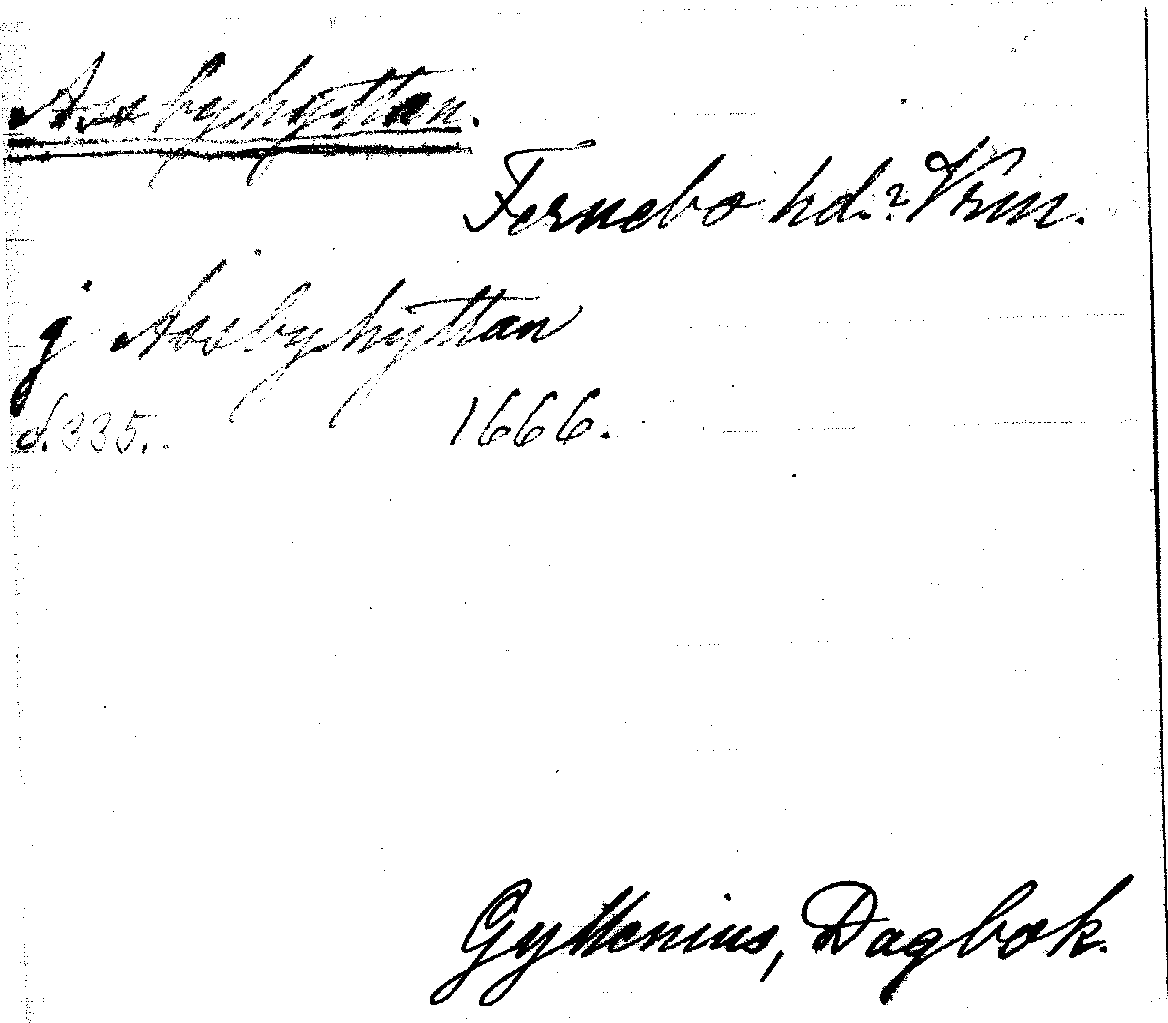 Assbyhyttan.
Fernebo hd.? Vrm.
j Assbyhyttan
s. 335. 1666.
Gyllenius, Dagbok.